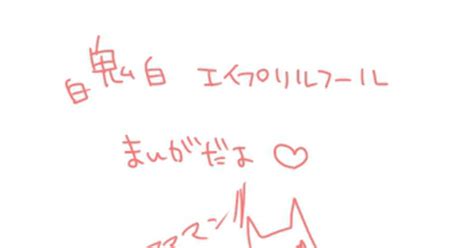 白鬼白 エイプリルフール
まいがだよ♡
アママン